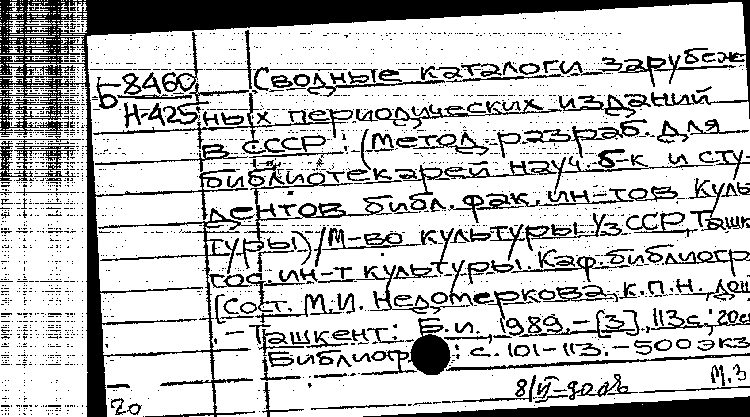 Б-8460 Сводные каталоги зарубеж
Н-425 ных периодических изданий
в СССР: (Метод. разраб. для
библиотекарей науч. б-к и сту-
дентов библ. фак. ин-тов куль
туры) / М-во культуры УзССР, Ташк.
гос. ин-т культуры. Каф. библиогр
[Сост. М.И. Недомеркова, к.п.н., доц
. - Ташкент: Б.и., 1989. - [3], 113 с.; 20см
Библиогр : с. 101-113. - 500 экз
М.З
20